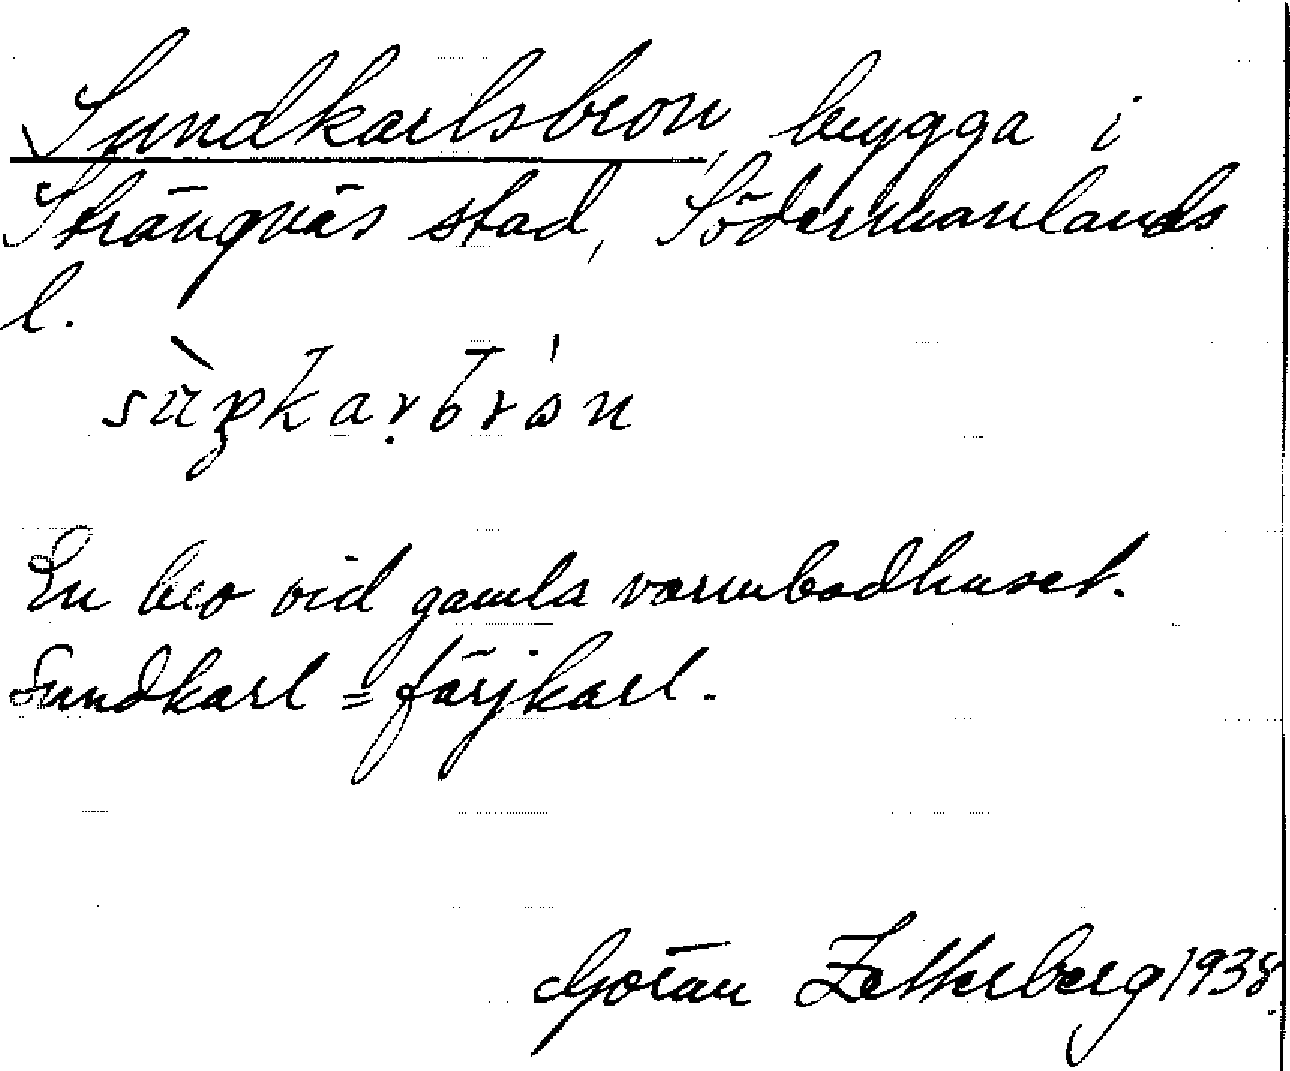 Sundkarlsbron, brygga i
Strängnäs stad, Södermanlands
l.
En bro vid gamla varmbadhuset.
Sundkarl = färjkarl.
Göran Zetterberg 1938.